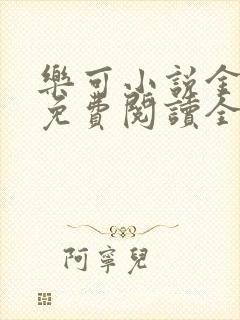 樂可小說全
免費閱讀全
阿寧兒